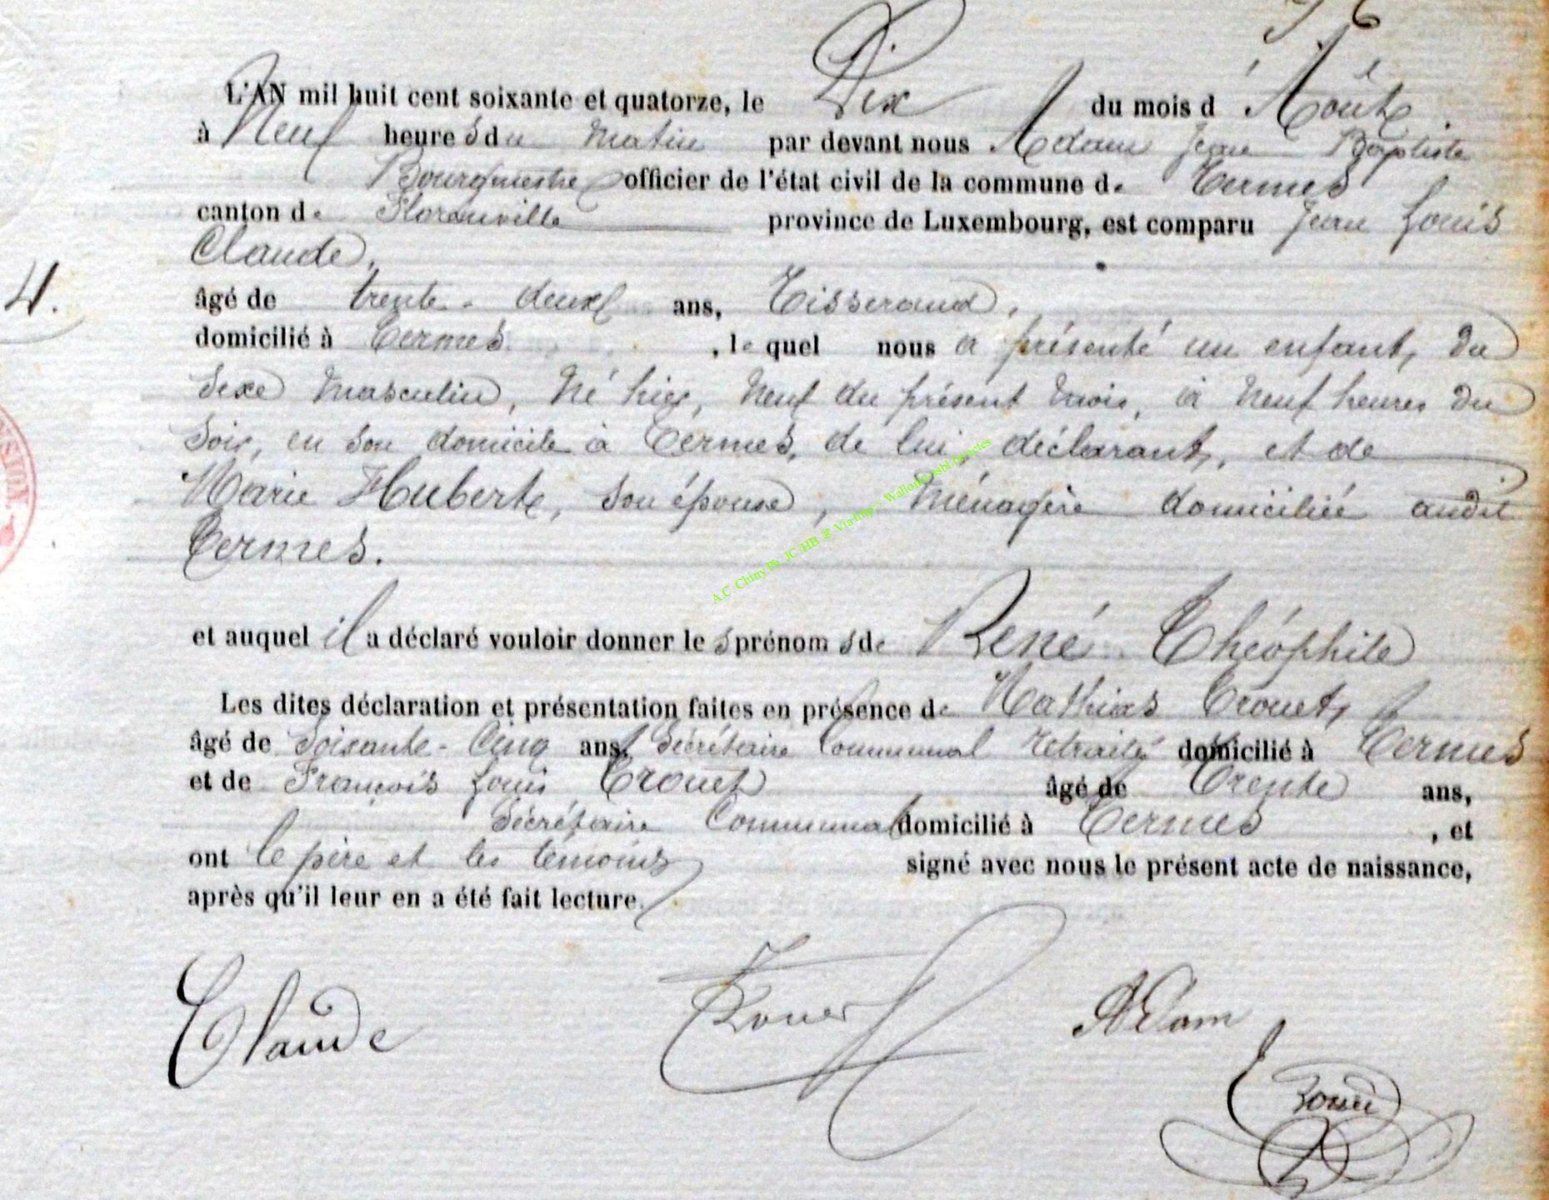 L'AN mil huit cent soixante et quatorze, le Dix du mois d'Août
à Neuf heures du matin par devant nous Adam Jean Baptiste
Bourgmestre officier de l'état civil de la commune de Termes
canton de Florenville province de Luxembourg, est comparu Jean Louis
Claude,
4.
âgé de trente-deux ans, Tisserand,
domicilié à Termes, lequel nous a présenté un enfant, du
sexe masculin, Né hier, Neuf du présent mois, à Neuf heures du
soir, en son domicile à Termes, de lui déclarant, et de
Marie Hubert, son épouse, Ménagère domiciliée audit
Termes.
et auquel il a déclaré vouloir donner les prénoms de René Théophile
Les dites déclaration et présentation faites en présence de Mathias Crouet,
âgé de Soisante-Cinq ans, Secrétaire Communal retraité domicilié à Termes
et de François Louis Crouet âgé de Trente ans,
Secrétaire Communal domicilié à Termes, et
ont le père et les témoins signé avec nous le présent acte de naissance,
après qu'il leur en a été fait lecture.
Claude
Adam